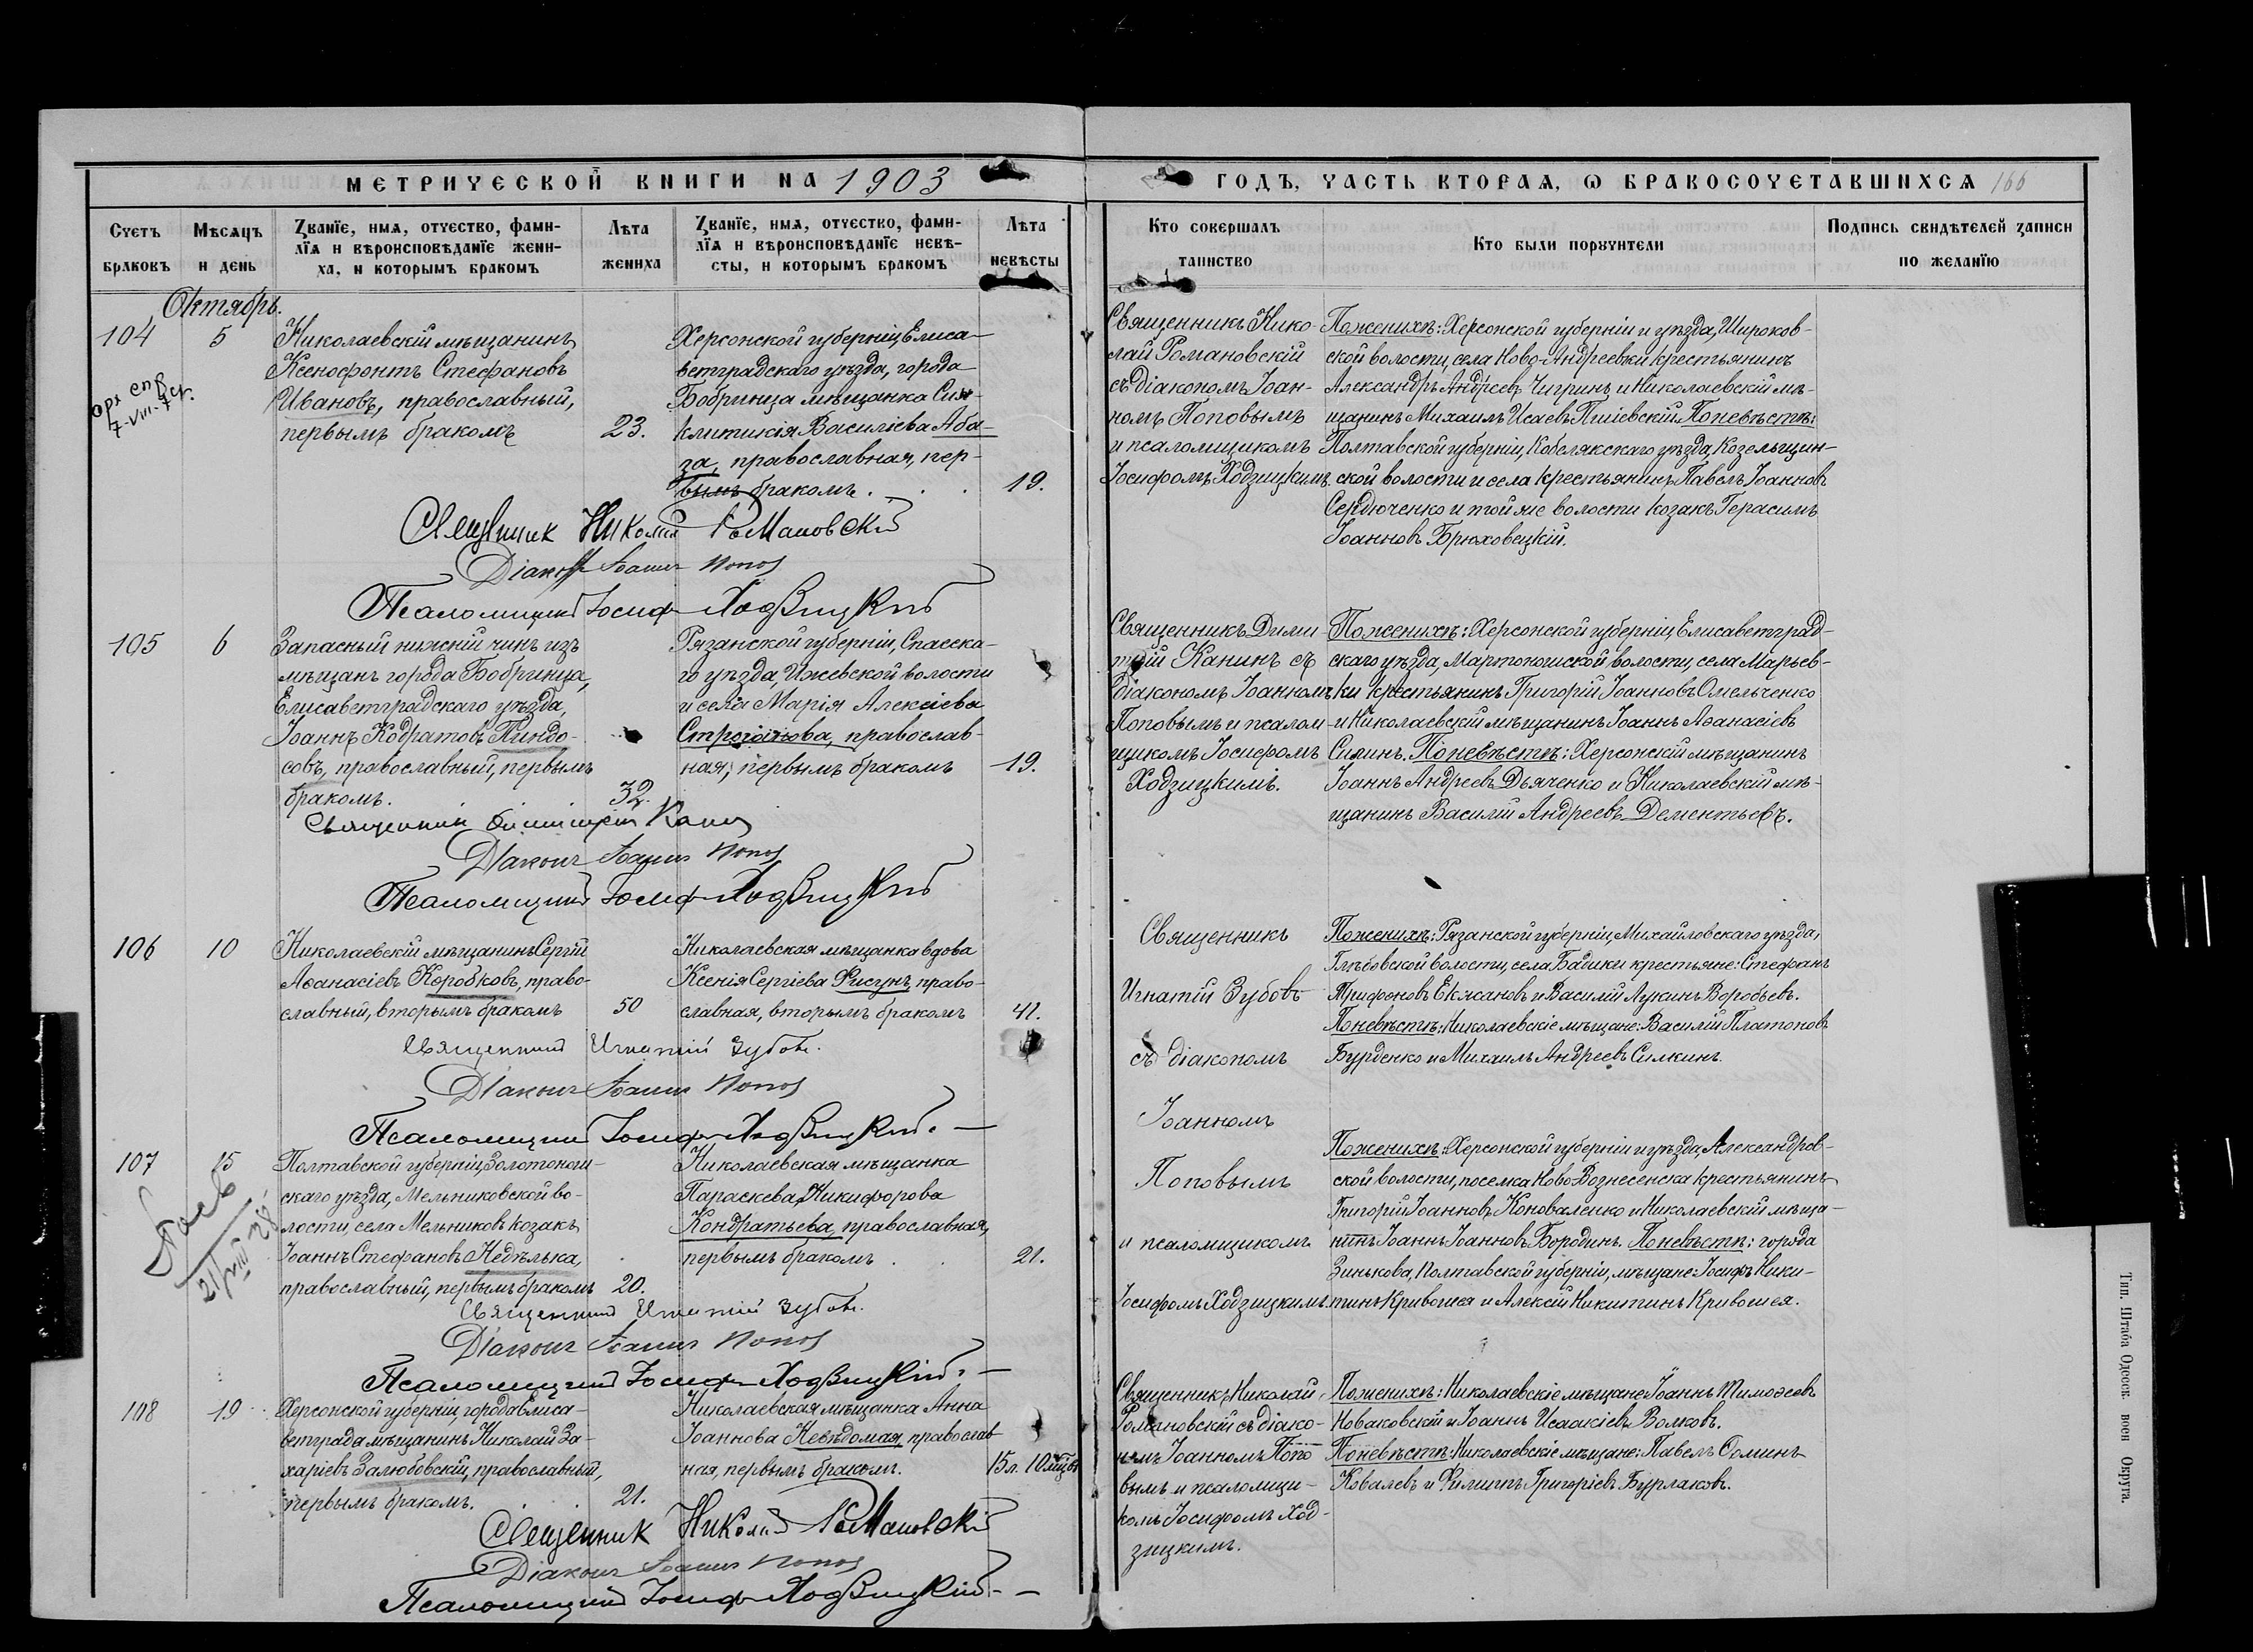 МЕТРИЧЕСКОЙ КНИГИ НА 1903
ГОДЪ, ЧАСТЬ ВТОРАЯ, Ѡ БРАКОСОЧЕТАВШИХСЯ 166
Счетъ браковъ
Мѣсяцъ и день
Званїе, имя, отчество, фами-
лїя и вѣроисповѣданїе жени-
ха, и которымъ бракомъ
Лѣта жениха
Званїе, имя, отчество, фами-
лїя и вѣроисповѣданїе невѣ-
сты, и которымъ бракомъ
Лѣта невѣсты
Кто совершалъ таинство
Кто были поручители
Подпись свидѣтелей записи по желанїю
Октябрь.
104
5
Николаевскій мѣщанинъ
Ксенофонтъ Стефановъ
Ивановъ, православный,
первымъ бракомъ
23.
Херсонской губерніи, Елиса-
ветградскаго уѣзда, города
Бобринца мѣщанка Син-
клитикія Василіева Аба-
за, православная, пер-
вымъ бракомъ.
19.
Священникъ Нико-
лай Романовскій
съ діакономъ Іоан-
номъ Поповымъ
и псаломщикомъ
Іосифомъ Ходзицкимъ.
По женихѣ: Херсонской губерніи и уѣзда, Широков-
ской волости, села Ново-Андреевки крестьянинъ
Александръ Андреевъ Чигринъ и Николаевскій мѣ-
щанинъ Михаилъ Исаевъ Пшіевскій. По невѣстѣ:
Полтавской губерніи, Кобелякскаго уѣзда, Козельщин-
ской волости и села крестьянинъ Павелъ Іоанновъ
Сердюченко и той же волости козакъ Герасимъ
Іоанновъ Брюховецкій.
Священник Николай Романовскій
Діаконъ Іоаннъ Попов
Псаломщикъ Іосиф Ходзицкий
105
6
Запасный нижній чинъ изъ
мѣщанъ города Бобринца,
Елисаветградскаго уѣзда,
Іоаннъ Кодратовъ Пиндо-
совъ, православный, первымъ
бракомъ.
32.
Рязанской губерніи, Спасска-
го уѣзда, Ижевской волости
и села Марія Алексіева
Строганова, православ-
ная, первымъ бракомъ
19.
Священникъ Дими-
трій Канинъ съ
діакономъ Іоанномъ
Поповымъ и псалом-
щикомъ Іосифомъ
Ходзицкимъ.
По женихѣ: Херсонской губерніи, Елисаветград-
скаго уѣзда, Мартоношской волости, села Марьев-
ки крестьянинъ Григорій Іоанновъ Омельченко
и Николаевскій мѣщанинъ Іоаннъ Аѳанасіевъ
Силинъ. По невѣстѣ: Херсонскій мѣщанинъ
Іоаннъ Андреевъ Дьяченко и Николаевскій мѣ-
щанинъ Василій Андреевъ Дементьевъ.
Священник Димитрій Канин
Діаконъ Іоаннъ Попов
Псаломщикъ Іосиф Ходзицкий
106
10
Николаевскій мѣщанинъ Сергій
Аѳанасіевъ Коробковъ, право-
славный, вторымъ бракомъ
50
Николаевская мѣщанка вдова
Ксенія Сергіева Фисунъ, право-
славная, вторымъ бракомъ
41.
Священникъ
Игнатій Зубовъ
съ діакономъ
Іоанномъ
Поповымъ
и псаломщикомъ
Іосифомъ Ходзицкимъ.
По женихѣ: Рязанской губерніи, Михайловскаго уѣзда,
Глѣбовской волости, села Бадики крестьяне: Стефанъ
Трифоновъ Екжановъ и Василій Лукинъ Воробьевъ.
По невѣстѣ: Николаевскіе мѣщане: Василій Платоновъ
Бурденко и Михаилъ Андреевъ Силкинъ.
Священникъ Игнатій Зубовъ.
Діаконъ Іоаннъ Попов
Псаломщикъ Іосиф Ходзицкий.
107
15
Полтавской губерніи, Золотонош-
скаго уѣзда, Мельниковской во-
лости, села Мельниковъ козакъ
Іоаннъ Стефановъ Недѣлька,
православный, первымъ бракомъ
20.
Николаевская мѣщанка
Параскева Никифорова
Кондратьева, православная,
первымъ бракомъ
21.
По женихѣ: Херсонской губерніи и уѣзда, Александров-
ской волости, поселка Ново-Вознесенска крестьянинъ
Григорій Іоанновъ Коноваленко и Николаевскій мѣща-
нинъ Іоаннъ Іоанновъ Бородинъ. По невѣстѣ: города
Зинькова, Полтавской губерніи, мѣщане: Іосифъ Ники-
тинъ Кривошея и Алексій Никитинъ Кривошея.
Священникъ Игнатій Зубовъ.
Діаконъ Іоаннъ Попов
Псаломщикъ Іосиф Ходзицкій.
108
19
Херсонской губерніи, города Елиса-
ветграда мѣщанинъ Николай За-
харіевъ Залюбовскій, православный,
первымъ бракомъ.
21.
Николаевская мѣщанка Анна
Іоаннова Невѣдомая, православ-
ная, первымъ бракомъ.
15 л. 10 мѣц.
Священникъ Николай
Романовскій съ діако-
номъ Іоанномъ Попо-
вымъ и псаломщи-
комъ Іосифомъ Ход-
зицкимъ.
По женихѣ: Николаевскіе мѣщане: Іоаннъ Тимоѳеевъ
Новаковскій и Іоаннъ Исаакіевъ Волковъ.
По невѣстѣ: Николаевскіе мѣщане: Павелъ Ѳоминъ
Ковалевъ и Филиппъ Григоріевъ Бурлаковъ.
Священник Николай Романовскій
Діаконъ Іоаннъ Попов
Псаломщикъ Іосиф Ходзицкій
Тип. Штаба Одесск. воен Округа.